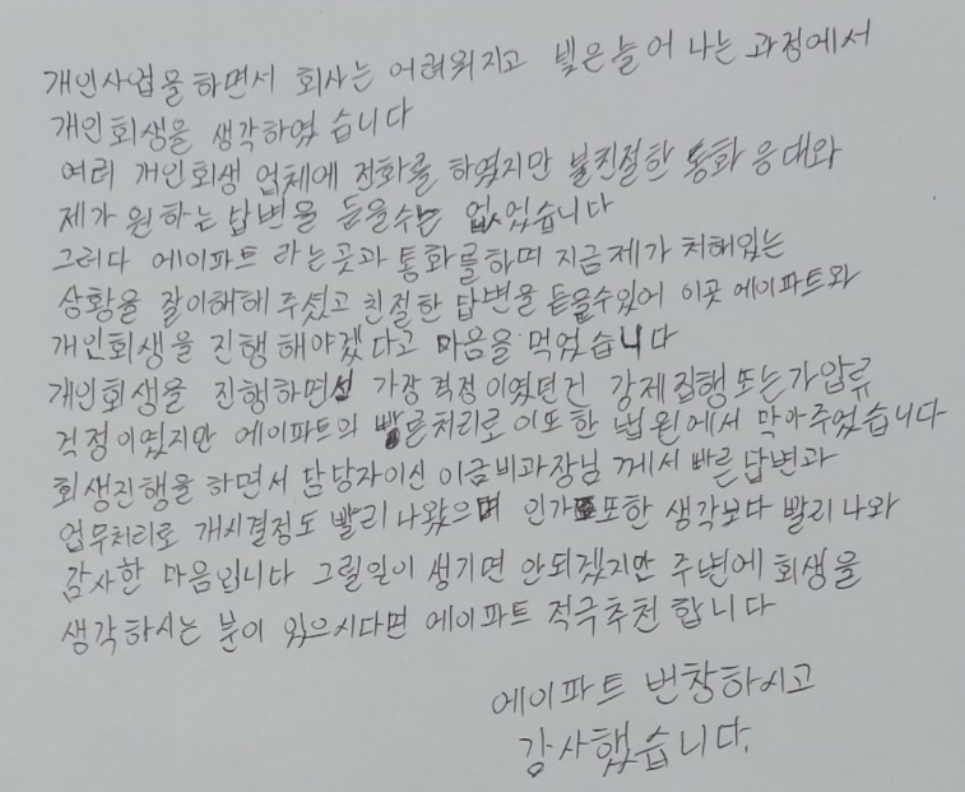 개인사업을 하면서 회사는 어려워지고 빚은 늘어 나는 과정에서
개인회생을 생각하였 습니다
여러 개인회생 업체에 전화를 하였지만 불친절한 통화 응대와
제가 원하는 답변을 듣을수는 없었습니다
그러다 에이파트 라는곳과 통화를하며 지금제가 처해있는
상황을 잘이해해 주셨고 친절한 답변을 듣을수있어 이곳 에이파트와
개인회생을 진행 해야겠다고 마음을 먹었습니다
개인회생을 진행하면서 가장 걱정 이였던건 강제집행또는가압류
걱정이였지만 에이파트의 빠른처리로 이또한 법원에서 막아주었습니다
회생진행을 하면서 담당자이신 이금비과장님 께서 빠른답변과
업무처리로 개시결정도 빨리 나왔으며 인가또한 생각보다 빨리 나와
감사한 마음입니다 그럴일이 생기면 안되겠지만 주변에 회생을
생각하시는 분이 있으시다면 에이파트 적극추천 합니다
에이파트 번창하시고
감사했습니다.